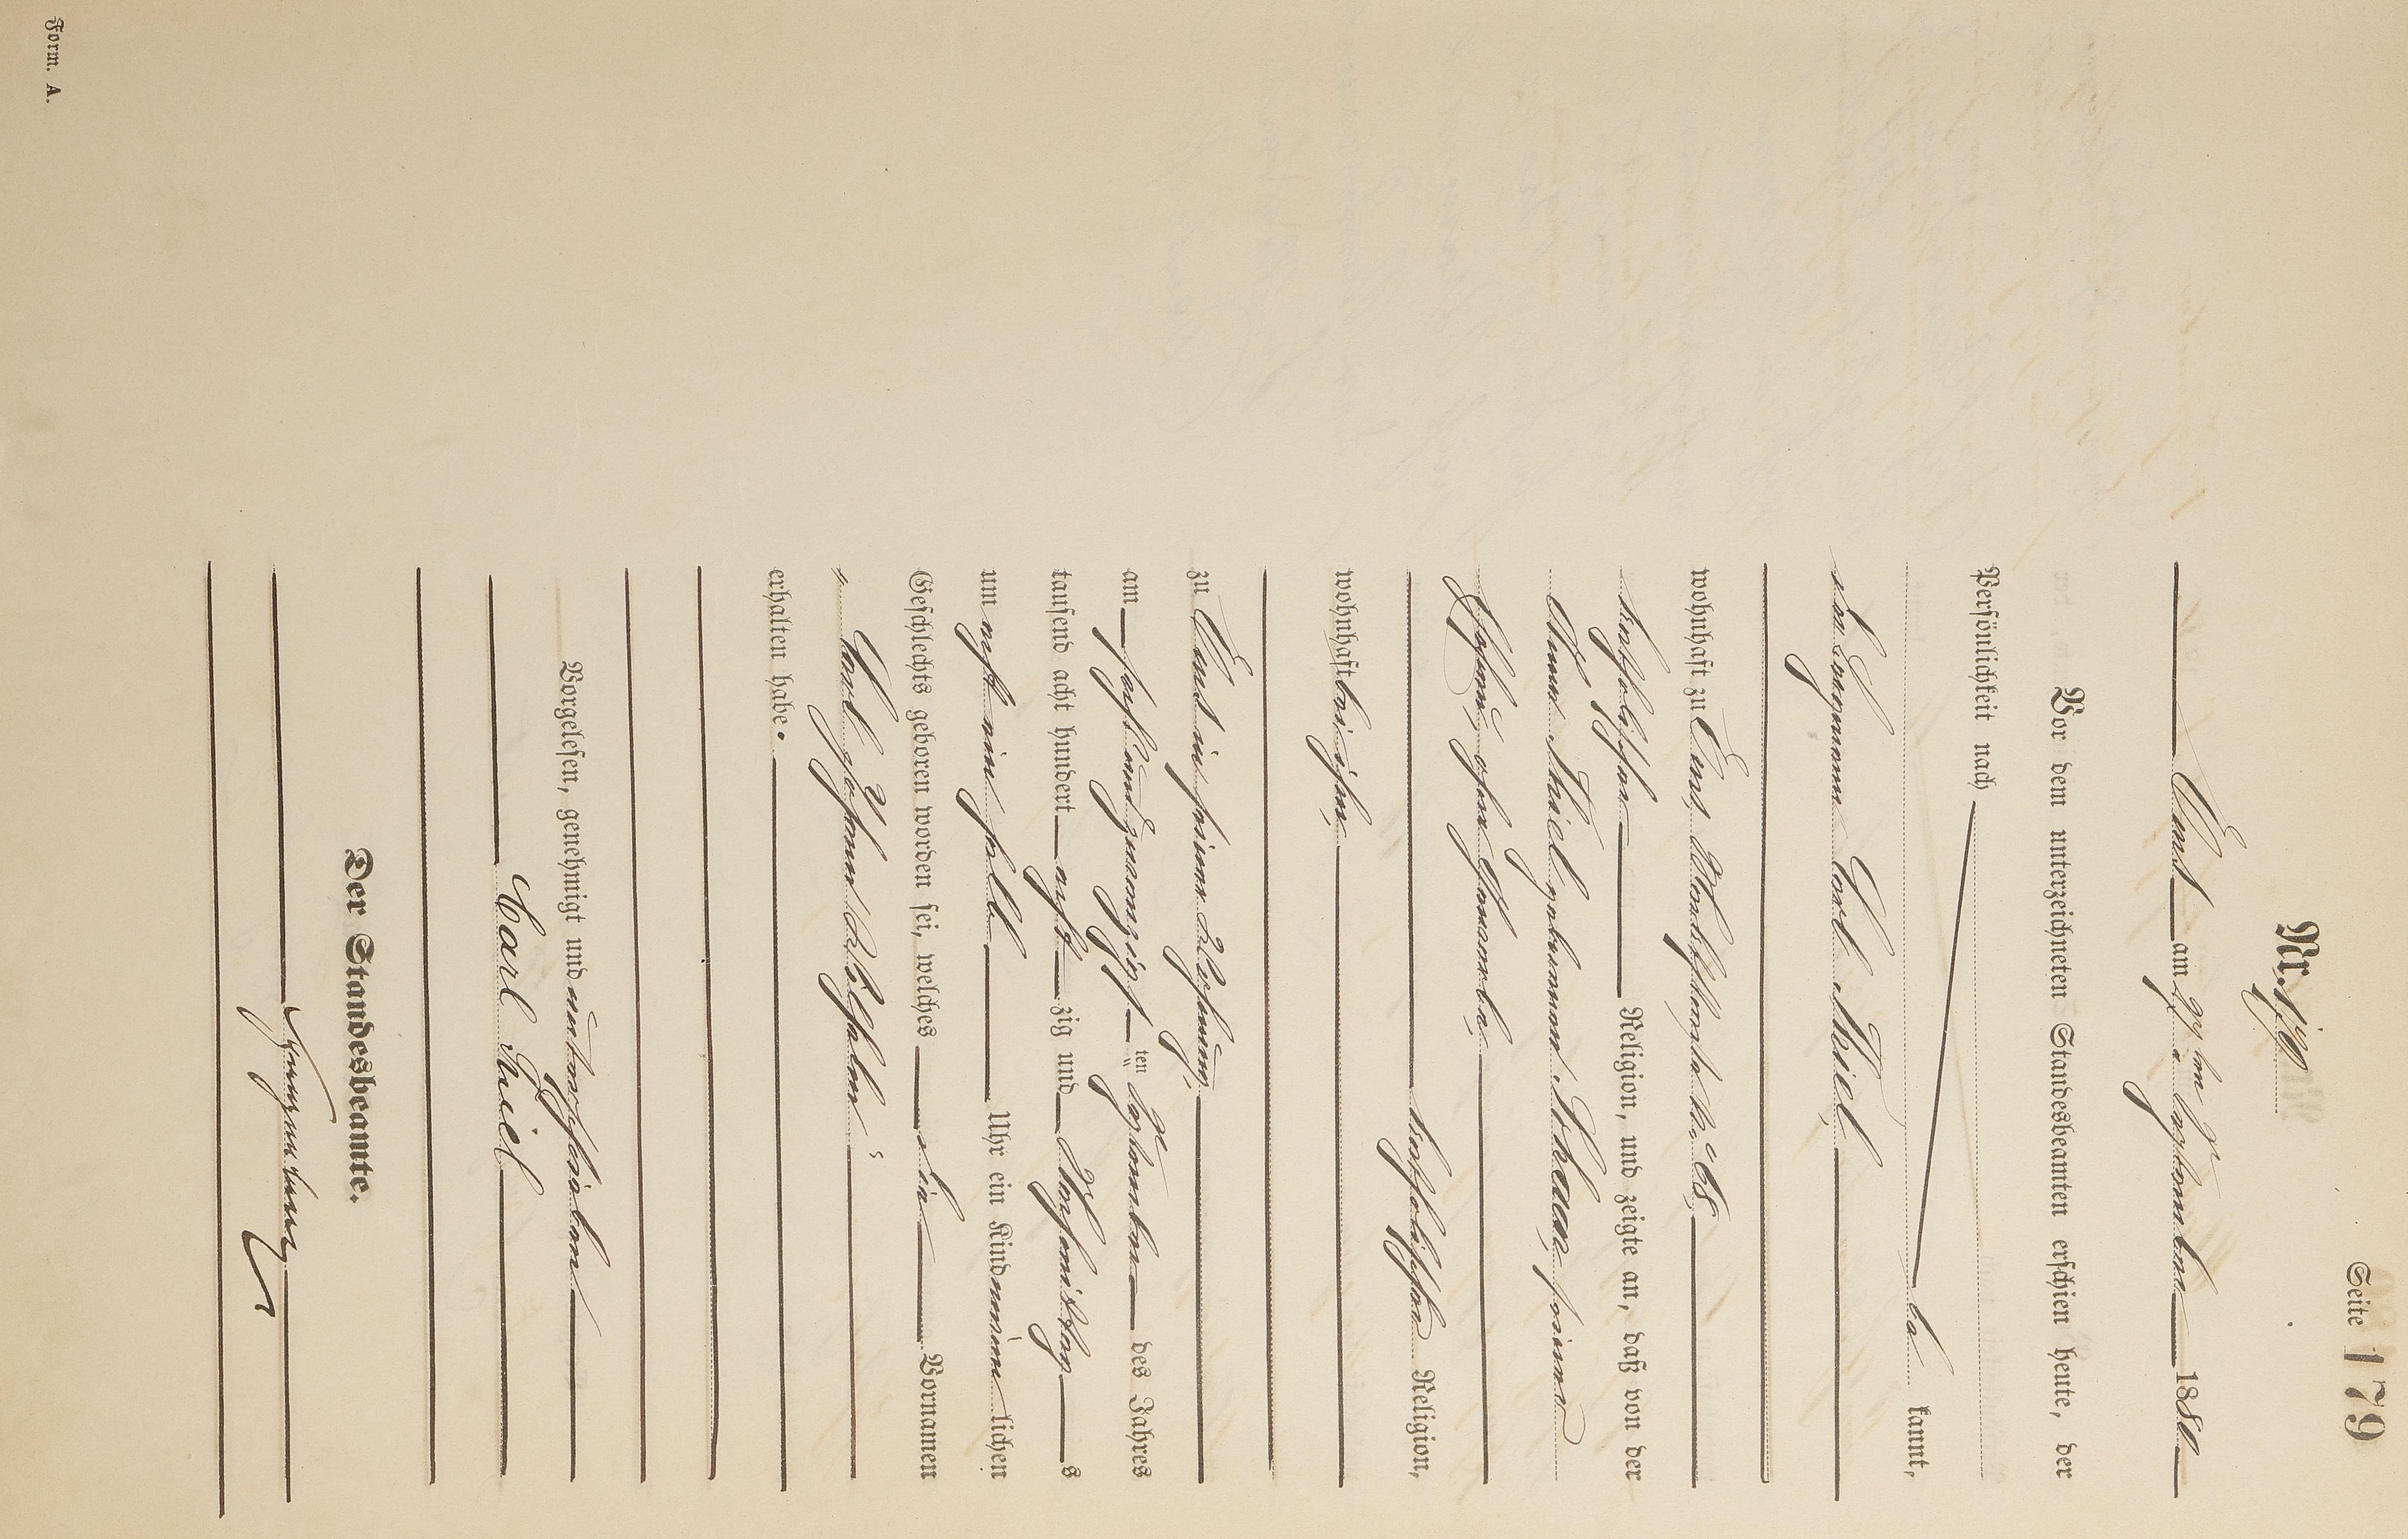 Seite 179
Nr. 179
Ems am 27ten September 1880
Vor dem unterzeichneten Standesbeamten erschien heute, der
Persönlichkeit nach
be kannt,
der Carl Thiel
wohnhaft zu Ems, No 68,
katholischer Religion, und zeigte an, daß von der
Anna Thiel geborenen seiner
Ehefrau,
katholischer Religion,
wohnhaft bei ihm,
zu Ems in seiner Wohnung,
am sechsundzwanzigsten September des Jahres
tausend acht hundert achtzig und Nachmittags
um acht ein halb Uhr ein Kind männlichen
Geschlechts geboren worden sei, welches die Vornamen
"Carl Johann Wilhelm"
erhalten habe.
Vorgelesen, genehmigt und unterschrieben
Carl Thiel
Der Standesbeamte.
Form. A.